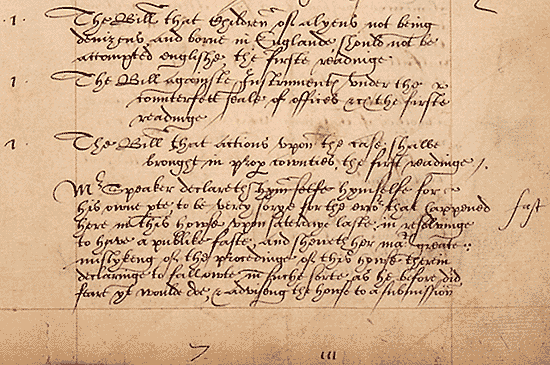 1 The Bill that Children of alyens not being
denizens and borne in Englande should not be
accompted englishe the firste readinge
1 The Bill againste Instruments under the
counterfett seale of offices &c the firste
readinge
1 The Bill that actions upon the case shalbe
brought in prop counties, the first readinge /.
Mr Speaker declareth hymselfe hymselfe for
his owne pte to be verey sorye for the error that happened fast
here in this howse upon saterdaye laste in resolvinge
to have a publike faste, and sheweth her mats greate
mislykeng of the procedinge of this howse therin
declaringe to fallowte in suche sorte as he before did
feare yt woulde doe, & advising the house to a submission